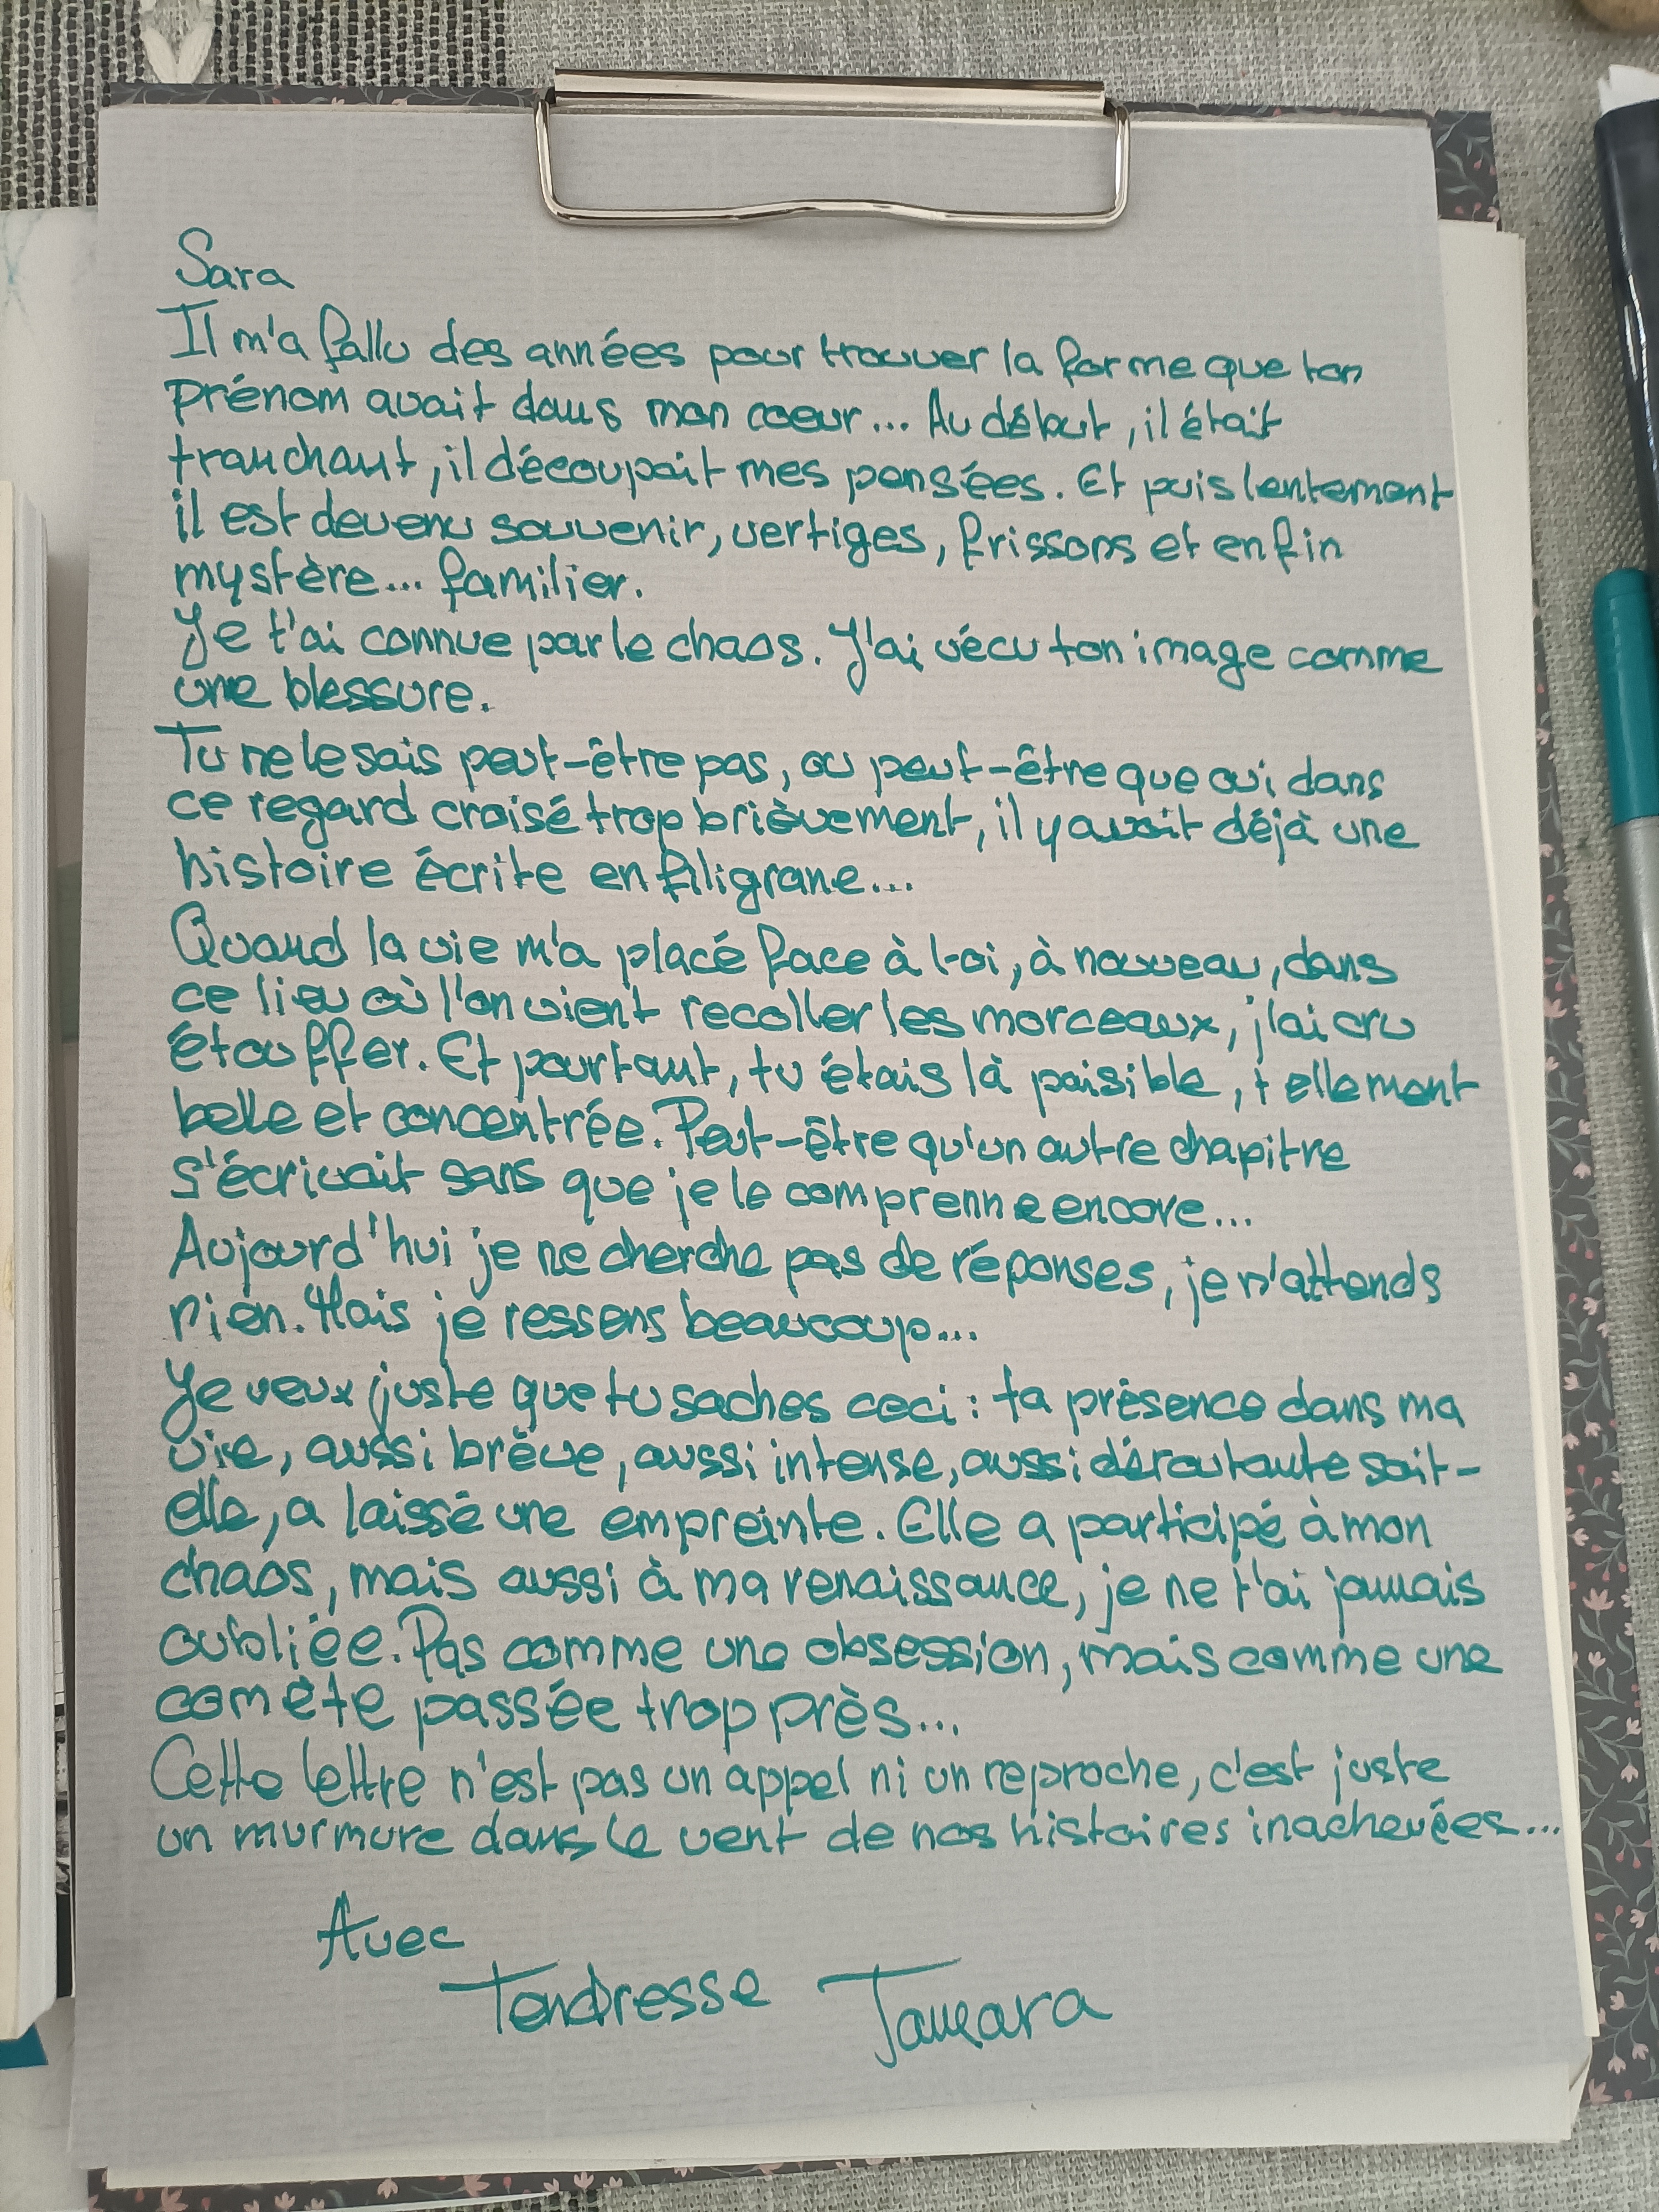 Sara
Il m'a fallu des années pour trouver la forme que ton
prénom avait dans mon cœur... Au début, il était
tranchant, il découpait mes pensées. Et puis lentement
il est devenu souvenir, vertiges, frissons et enfin
mystère... familier.
Je t'ai connue par le chaos. J'ai vécu ton image comme
une blessure.
Tu ne le sais peut-être pas, ou peut-être que oui dans
ce regard croisé trop brièvement, il y avait déjà une
histoire écrite en filigrane...
Quand la vie m'a placé face à toi, à nouveau, dans
ce lieu où l'on vient recoller les morceaux, j'ai cru
étouffer. Et pourtant, tu étais là paisible, tellement
belle et concentrée. Peut-être qu'un autre chapitre
s'écrivait sans que je le comprenne encore...
Aujourd'hui je ne cherche pas de réponses, je n'attends
rien. Mais je ressens beaucoup...
Je veux juste que tu saches ceci : ta présence dans ma
vie, aussi brève, aussi intense, aussi déroutante soit-
elle, a laissé une empreinte. Elle a participé à mon
chaos, mais aussi à ma renaissance, je ne t'ai jamais
oubliée. Pas comme une obsession, mais comme une
comète passée trop près...
Cette lettre n'est pas un appel ni un reproche, c'est juste
un murmure dans le vent de nos histoires inachevées...
Avec
Tendresse Tamara